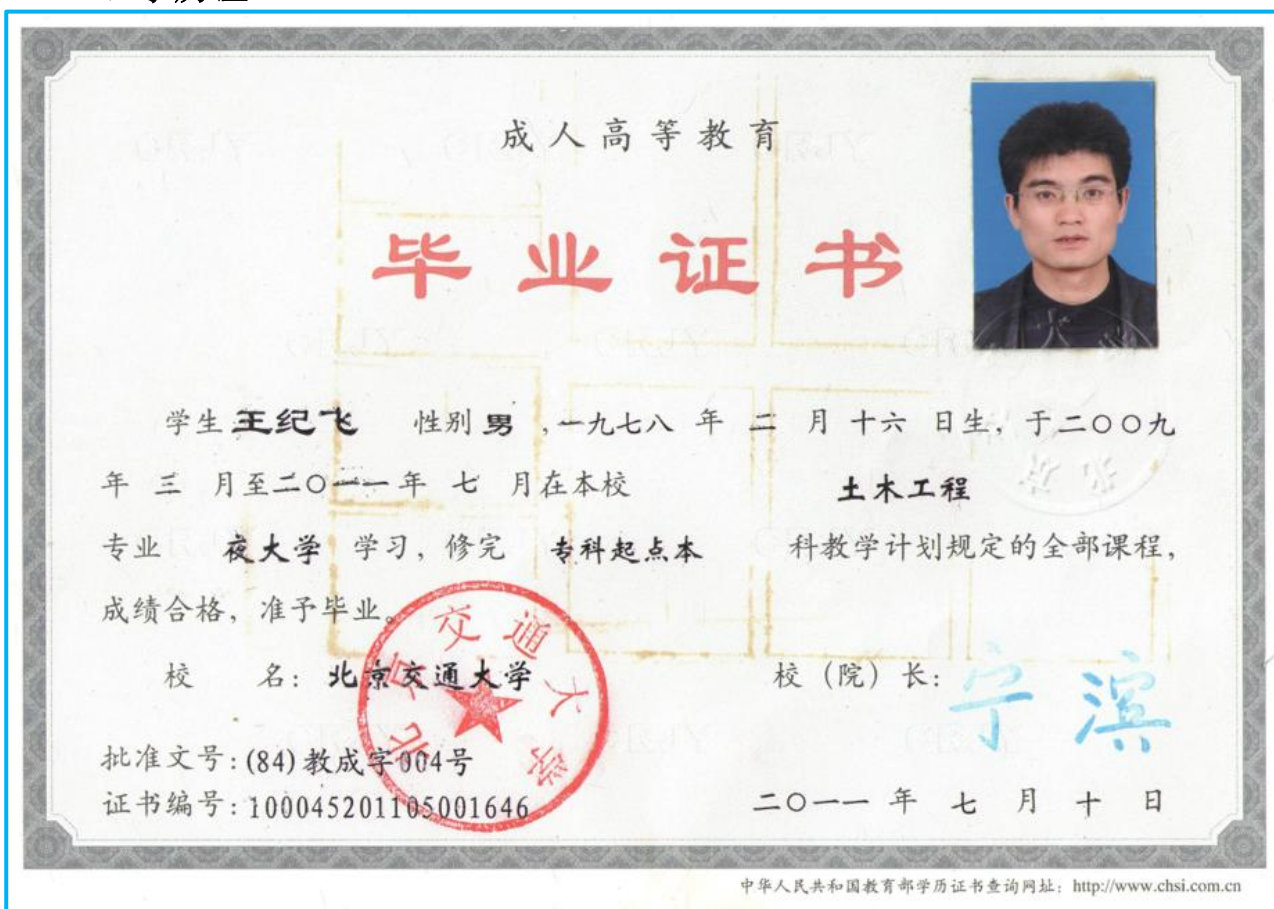 成人高等教育
毕业证书
学生 王纪飞 性别 男 ,一九七八 年 二 月 十六 日生, 于二〇〇九
年 三 月至二〇一一年 七 月在本校 土木工程
专业 夜大学 学习, 修完 专科起点本 科教学计划规定的全部课程,
成绩合格, 准予毕业。
北京交通大学
校 名: 北京交通大学 校 (院) 长: 宁滨
批准文号: (84) 教成字004号
证书编号: 100045201105001646 二〇一一 年 七 月 十 日
中华人民共和国教育部学历证书查询网址: http://www.chsi.com.cn